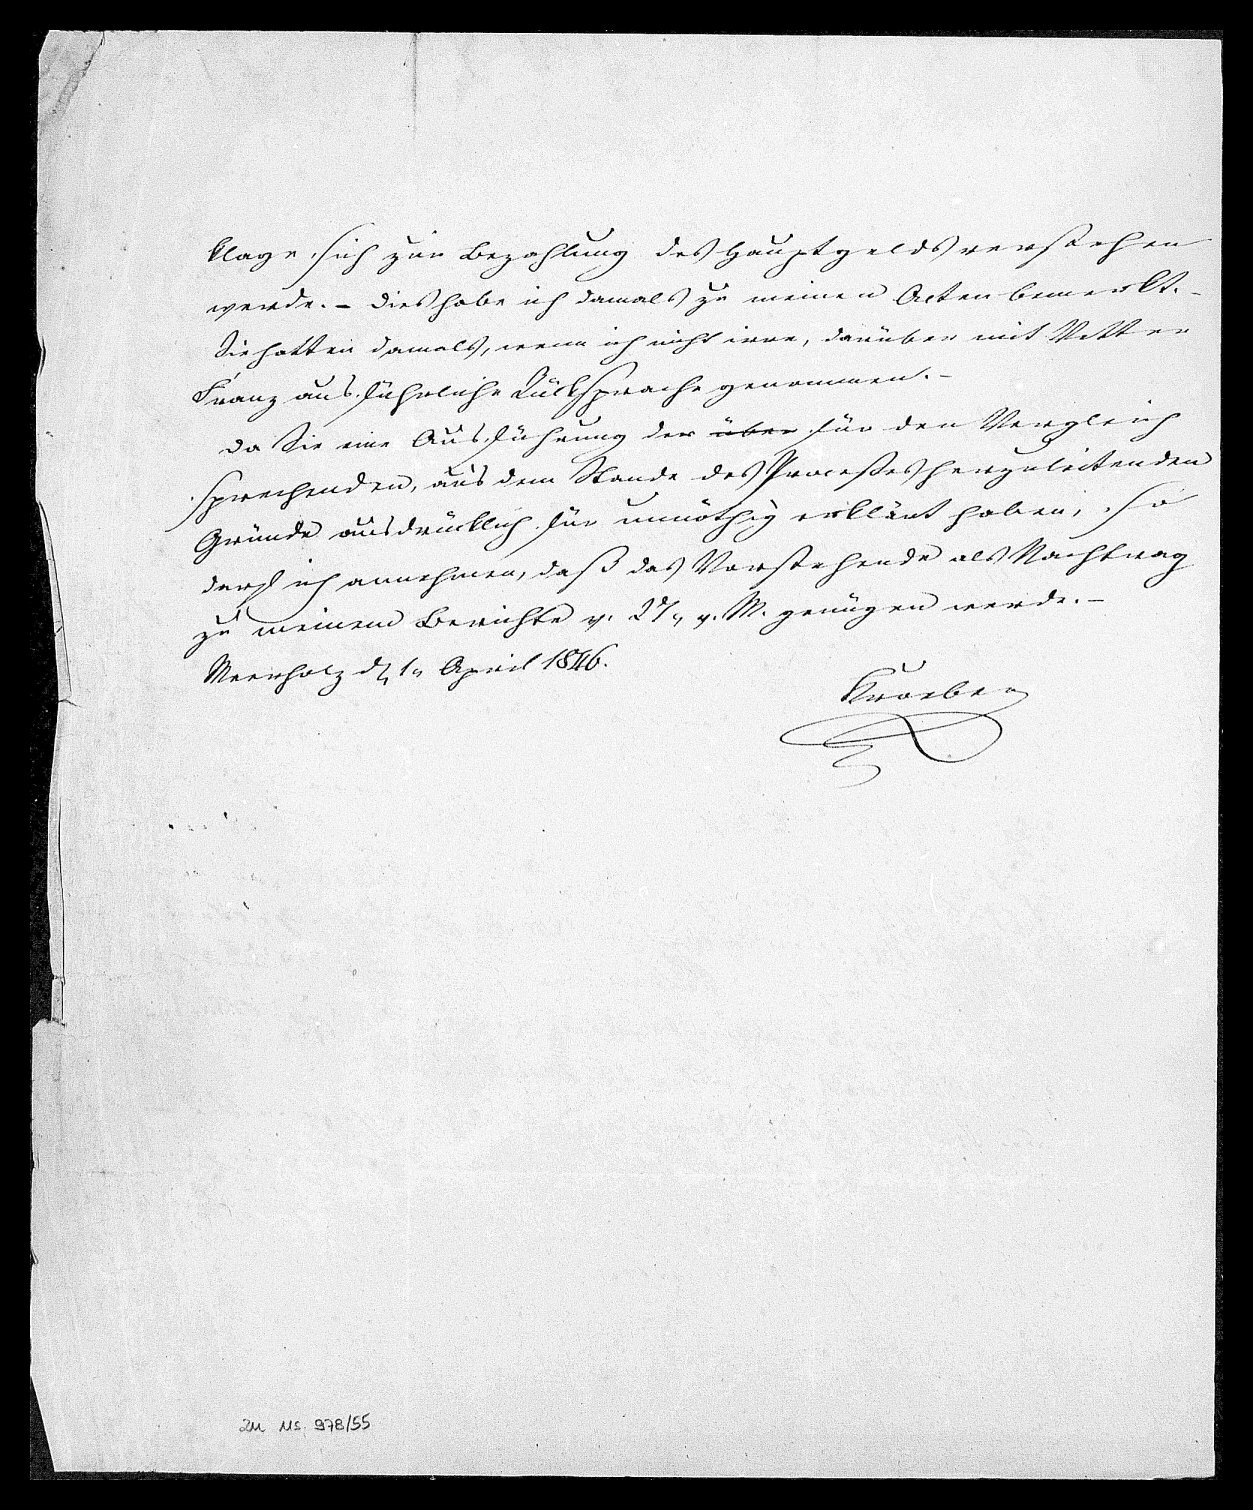 klage sich zur Bezahlung des Hauptgelds verstehen
werde. – Dies habe ich damals zu meinen Acten bemerkt. –
Sie hatten damals, wenn ich nicht irre, darüber mit Vetter
Franz ausführliche Rücksprache genommen. –
Da Sie eine Ausführung der über für den Vergleich
sprechenden, aus dem Stande des Proceßes herzuleitenden
Gründe ausdrücklich für unnöthig erklärt haben, so
darf ich annehmen, daß das Vorstehende als Nachtrag
zu meinem Berichte v. 27, v. M. genügen werde. –
Meerholz d. 1, April 1846.
Kroeber
zu Ms. 978/55